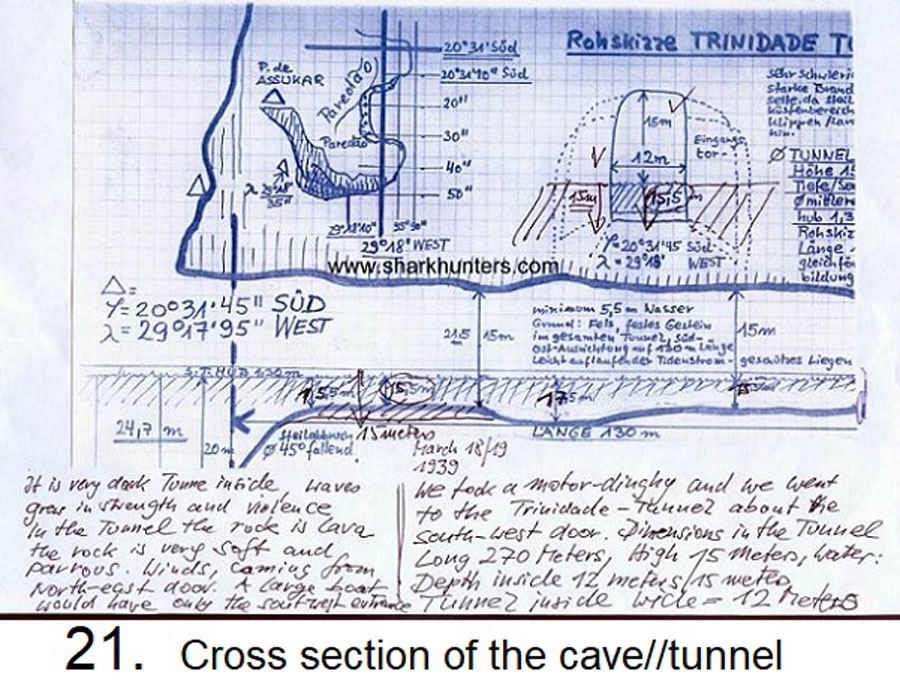 Rohskizze TRINIDADE
20°31' Süd
20°31'10" Süd
20"
30"
40"
50"
P. de
ASSUKAR
Paredao
Paredão
29°18' WEST
www.sharkhunters.com
15m
12m
Eingangs
tor-
15m
15,5m
φ=20°31'45 Süd
λ=29°18' WEST
sehr schwieri
starke Brand
seite, da steil
küstenbereich
Klippen
hin.
Ø TUNNEL
Höhe 15
Tiefe
Ø mittlere
hub 1,3
Rohskiz
Länge -
gleichfö
bildung
Δ=
φ=20°31'45" SÜD
λ=29°17'95" WEST
21,5
15m
minimum 5,5m Wasser
Grund: Fels, festes Gestein
im gesamten Tunnel, süd-
ost-Ausrichtung auf 130m Länge
Leicht auflaufender Tidenstrom-
15m
Liegen
5,5m
15,5m
15meters
LÄNGE 130m
24,7 m
20m
Ø 45° fallend
It is very dark Tunne inside, waves
grow in strength and violence
In the Tunnel the rock is lava
the rock is very soft and
parrous. Winds, caming from
North-east door. A large boat
would have only the southwest entrance
March 18/19
1939
We took a motor-dinghy and we went
to the Trinidade-Tunnel about the
south-west door. Dimensions in the Tunnel
Long 270 Meters, High 15 Meters, water:
Depth inside 12 meters/15 meters,
Tunnel inside wide = 12 Meters
21. Cross section of the cave//tunnel